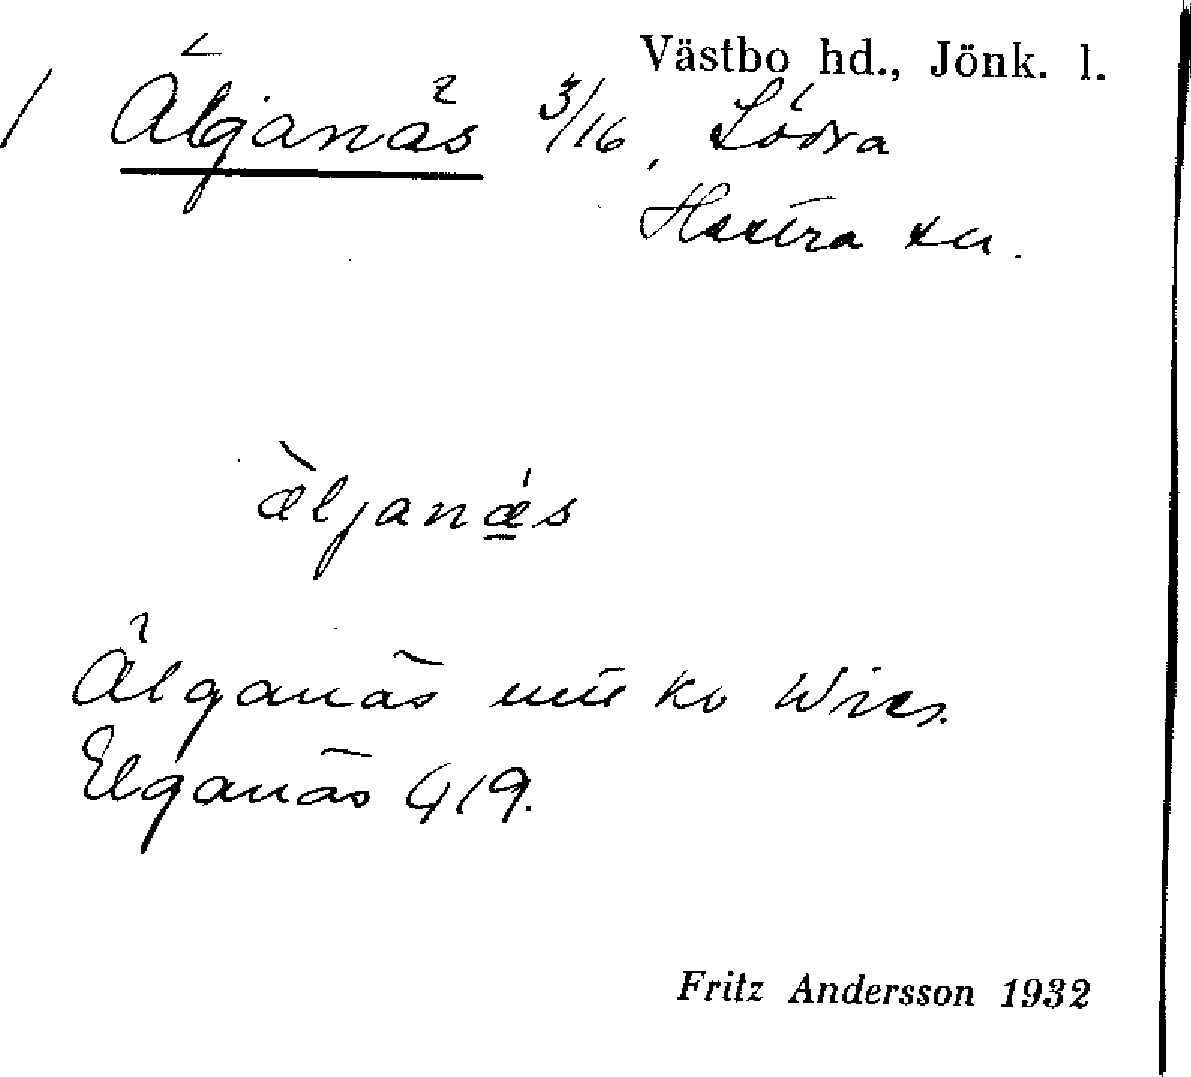 Västbo hd., Jönk. l.
1 Älganäs 3/16, Södra
Hestra sn.
æ̀ljanǽs
Älganäs utt ko Wies.
Elganäs G 19.
Fritz Andersson 1932